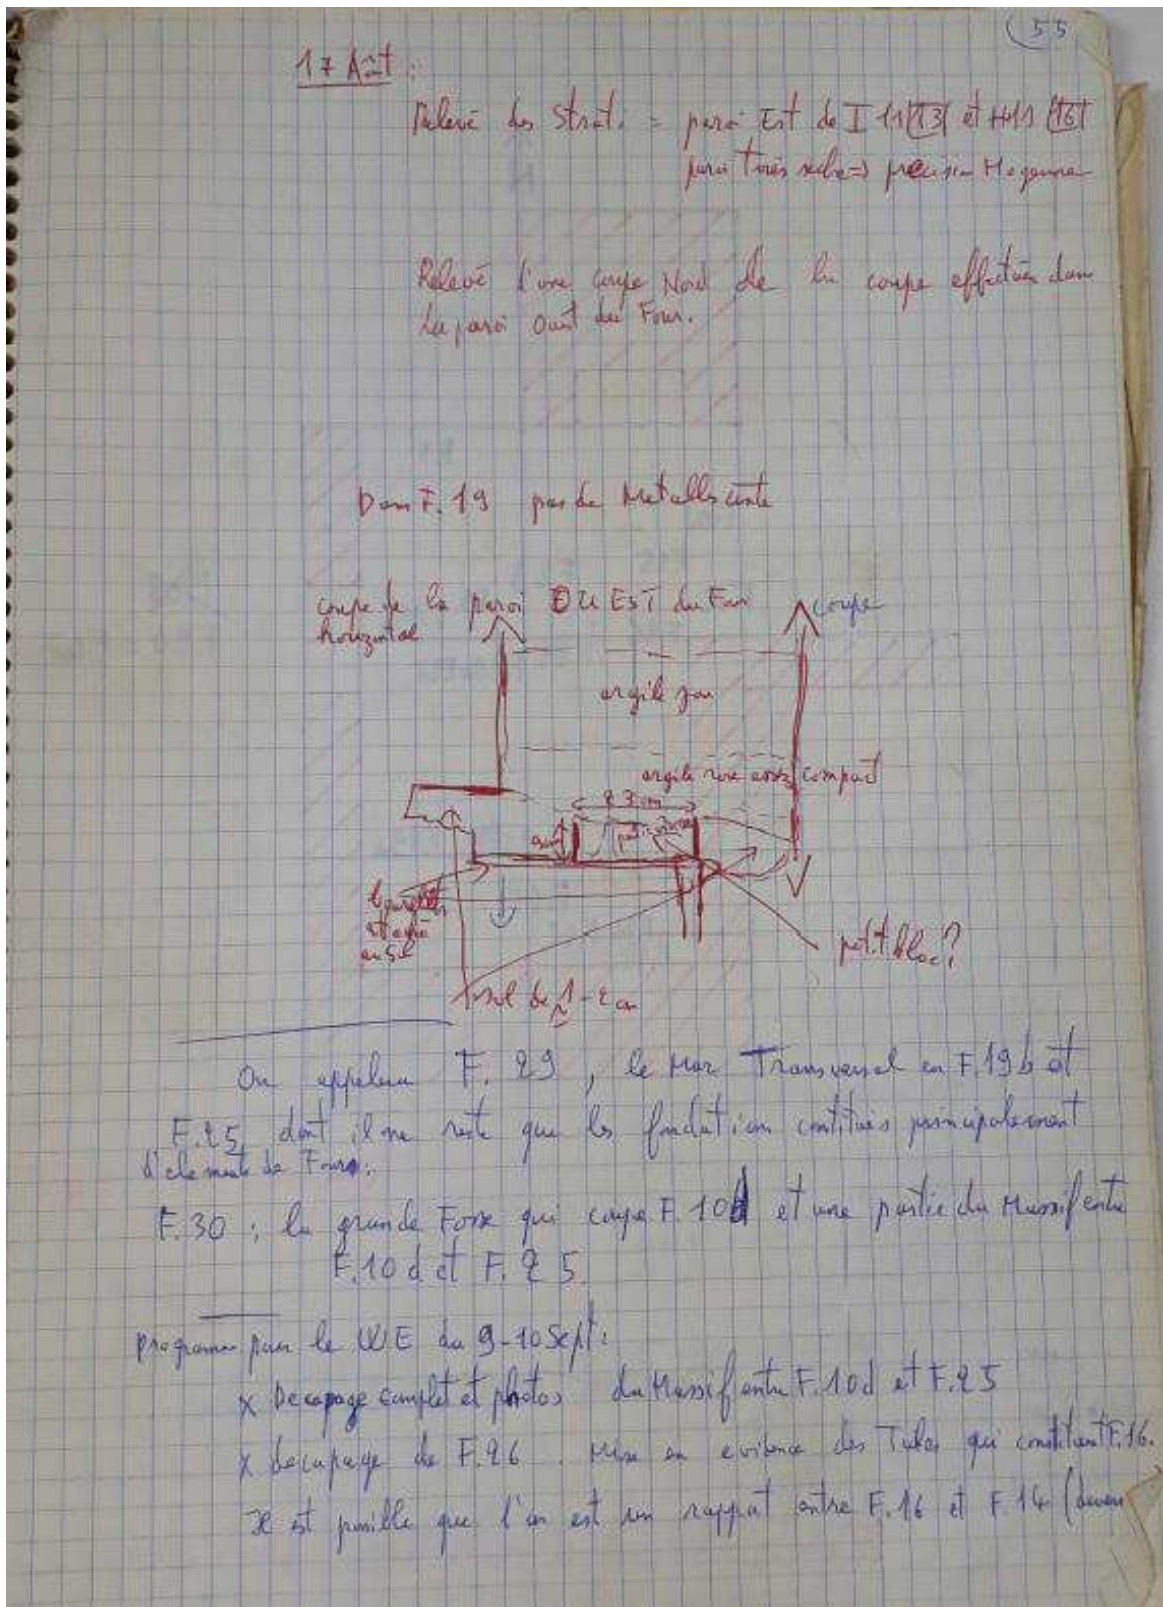 55
17 Août :
Relevé des Strati. = paroi Est de I 11 13 et H11 16
paroi Très sèche => precision Moyenne
Relevé d'une coupe Nord de la coupe effectuée dans
la paroi Ouest du Four.
Dans F. 19 pas de
coupe de la paroi OUEST du Four
horizontal
coupe
argile
argile rose assez compact
23 cm
petit bloc?
au sol
sol de 1-2 cm
On appelera F. 29, le Mur Transversal en F.19b et
F.25, dont il ne reste que les fondation constitués principalement
d'elements de Fours.
F.30 : la grande Fosse qui coupe F.10d et une partie du Massif entre
F.10d et F.25.
programme pour le WE du 9-10 Sept :
x Decapage complet et photos du Massif entre F.10d et F.25
x Decapage de F.26. Mise en evidence des Tubes qui constituent F.16.
Il est possible que l'on est un rapport entre F.16 et F.14 (